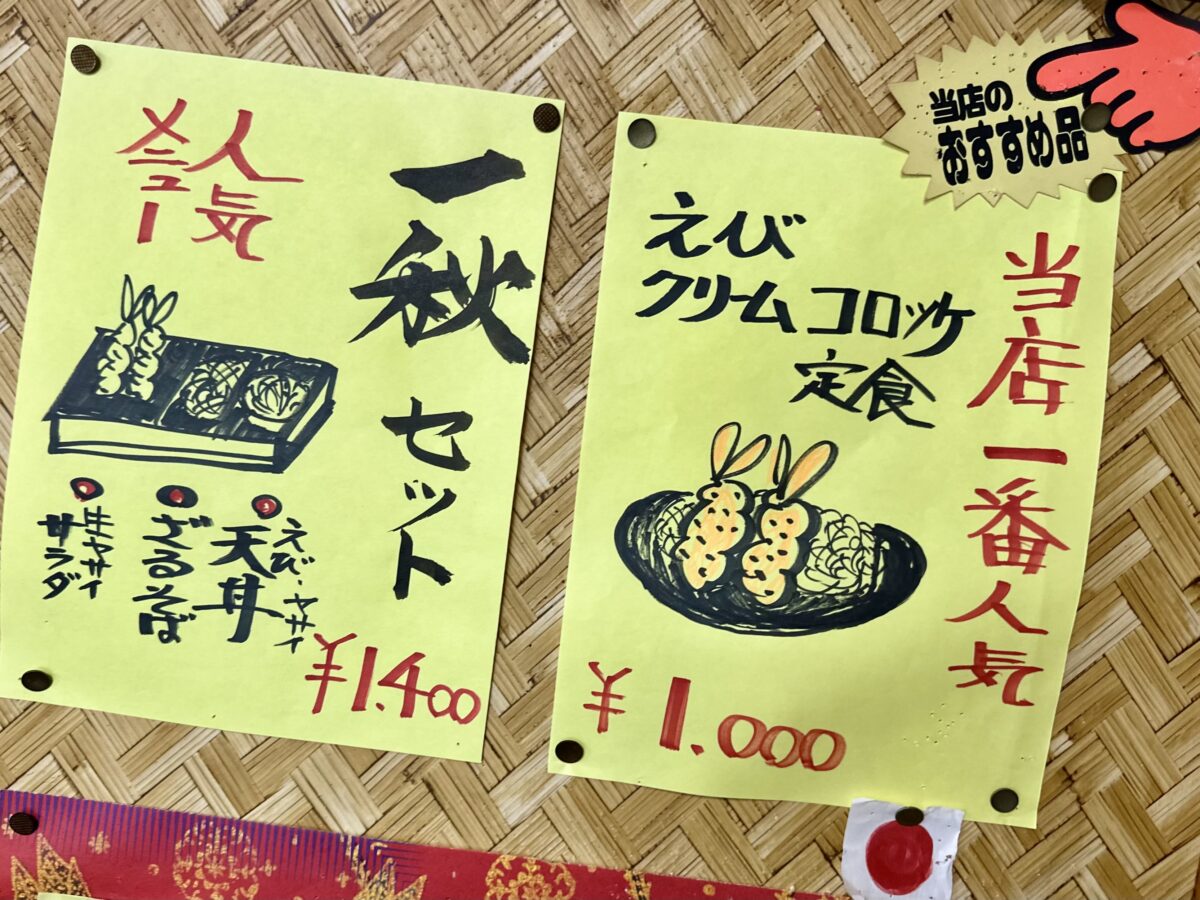 人気
メニュー
一秋セット
えび・ヤサイ
天丼
ざるそば
生ヤサイ
サラダ
¥1.400
当店の
おすすめ品
当店一番人気
えび
クリームコロッケ
定食
¥1.000